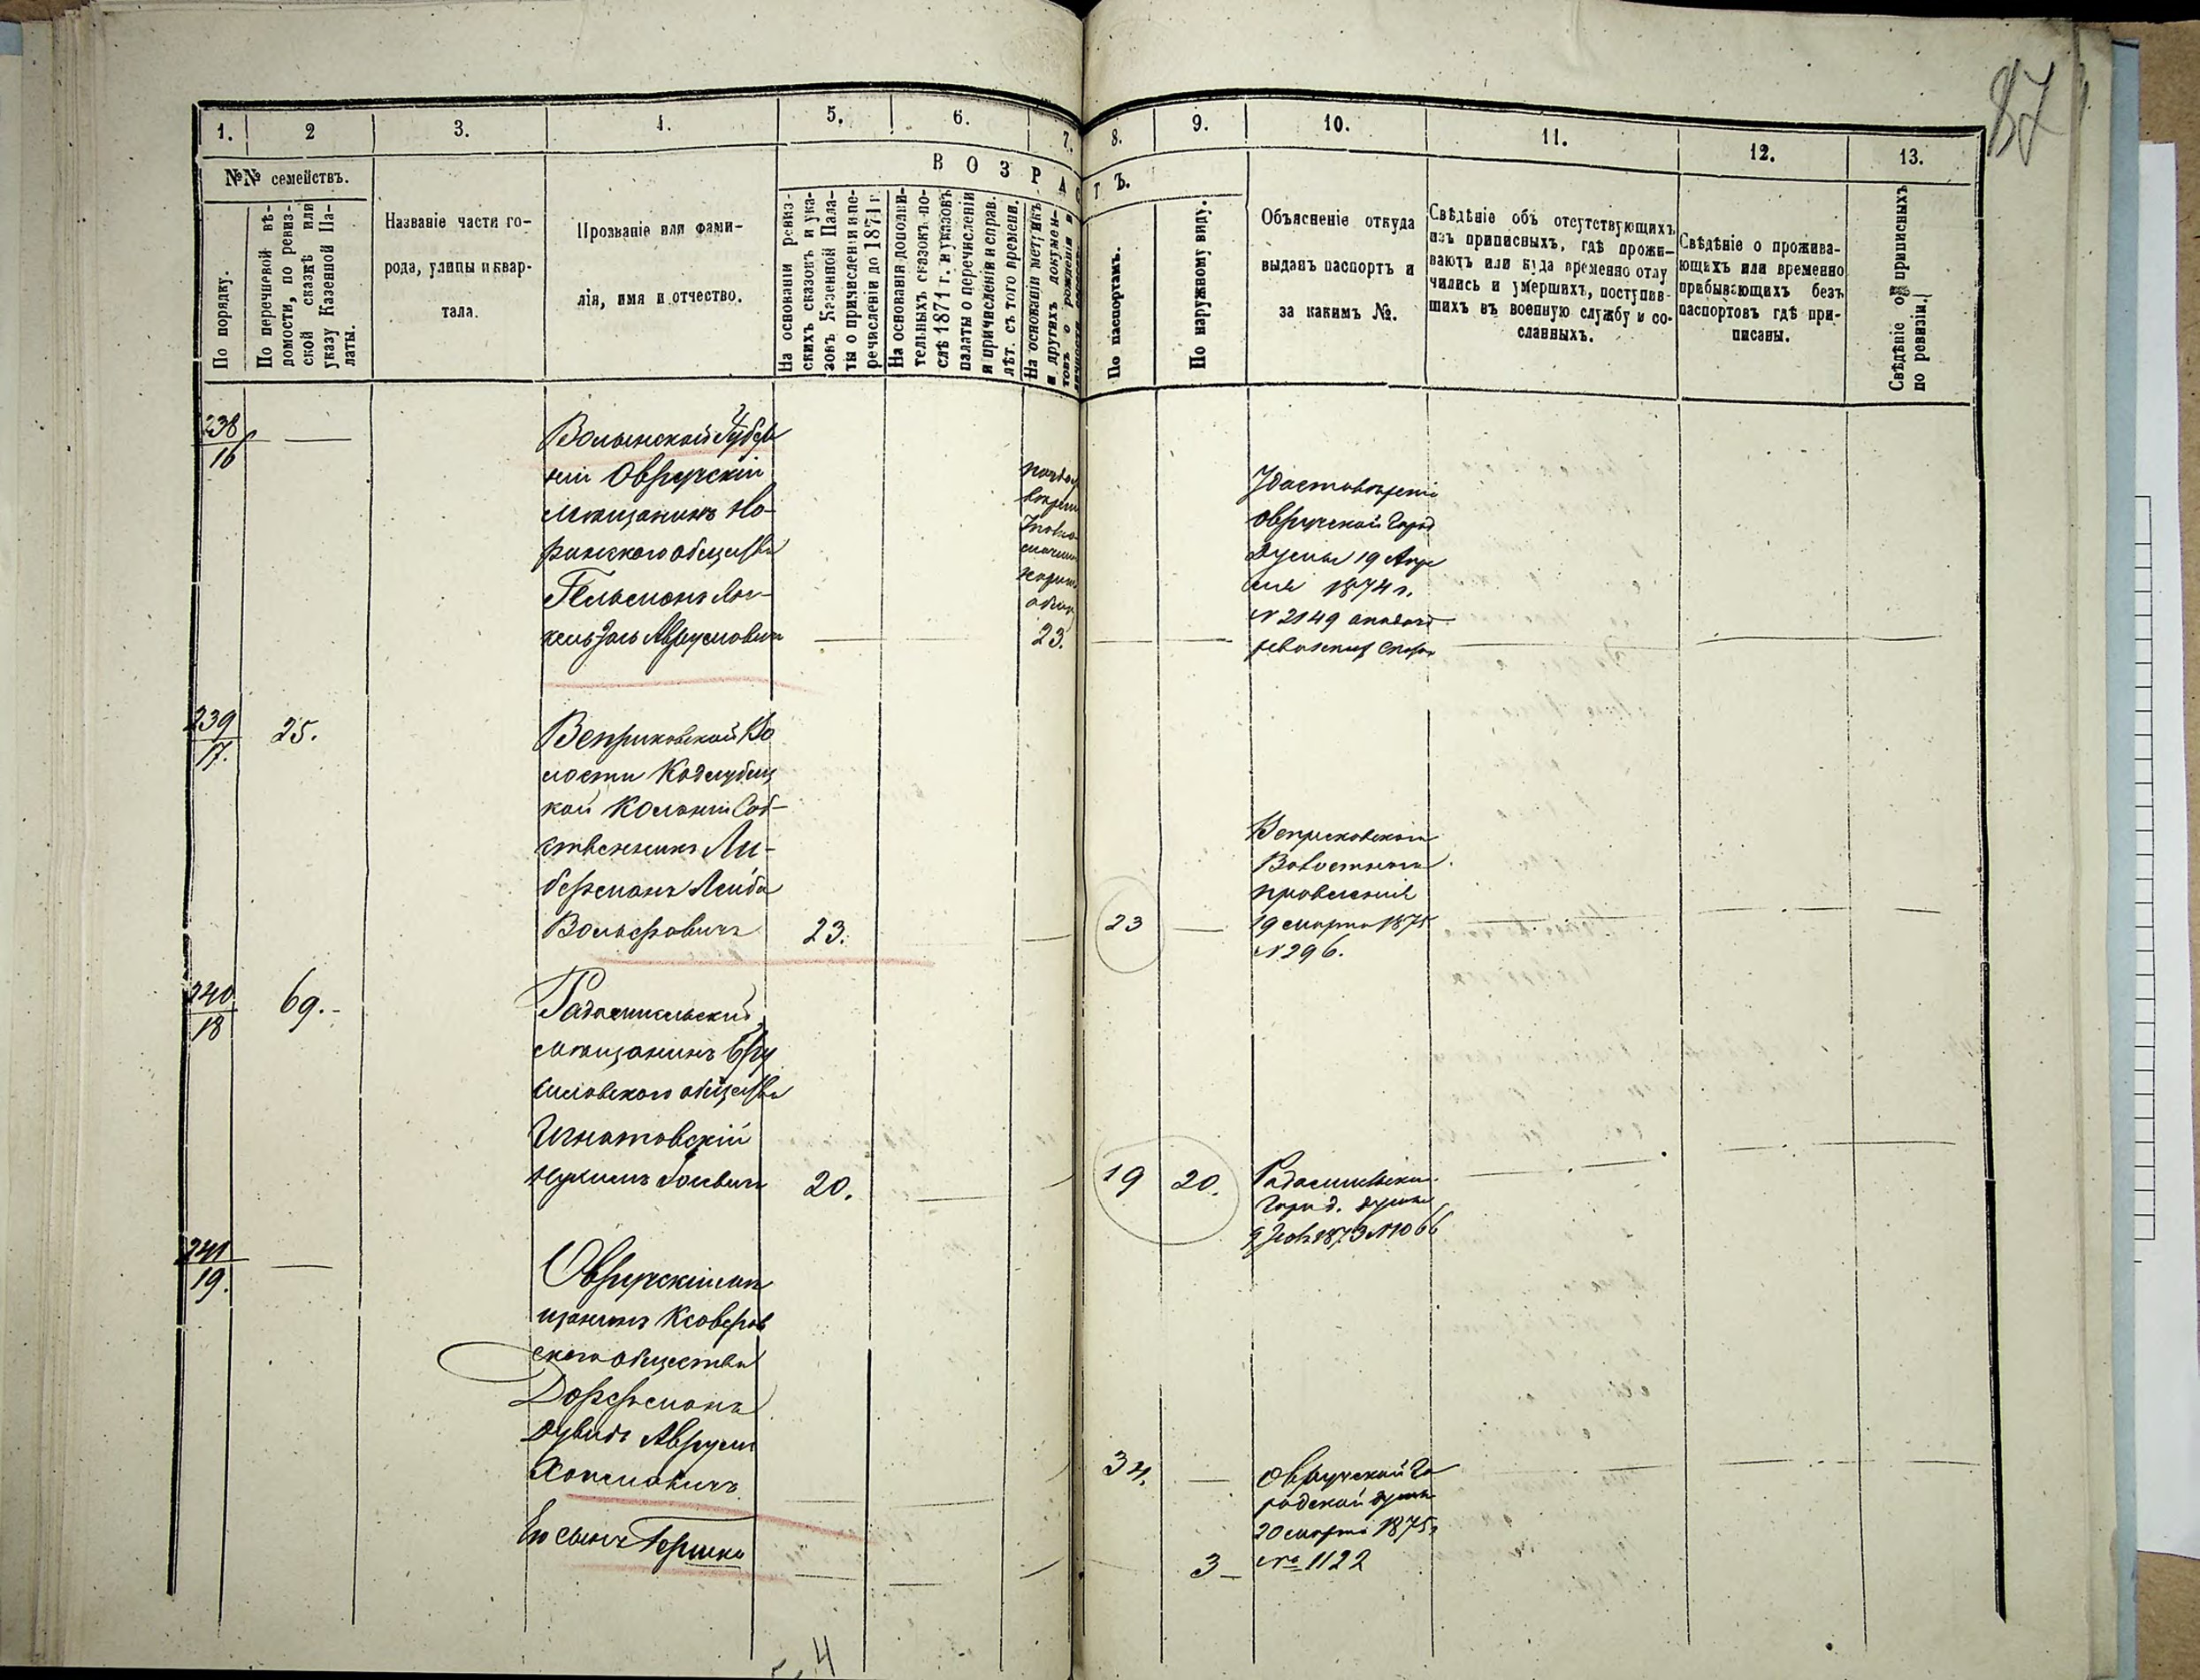 87
1. 2 3. 4. 5. 6. 7. 8. 9. 10. 11. 12. 13.
№№ семействъ.
ВОЗРАСТЪ.
По порядку.
По перечневой вѣ-
домости, по ревиз-
ской сказкѣ или
указу Казенной Па-
латы.
Названіе части го-
рода, улицы и квар-
тала.
Прозваніе или фами-
лія, имя и отчество.
На основаніи ревиз-
скихъ сказокъ и ука-
зовъ Казенной Пала-
ты о причисленіи и пе-
речисленіи до 1871 г.
На основаніи дополни-
тельныхъ сказокъ по-
слѣ 1871 г. и указовъ
палаты о перечисленіи
и причисленіи и справ.
лѣт. съ того времени.
На основаніи метрикъ
и другихъ докумен-
товъ о рожденіи и
По паспортамъ.
По наружному виду.
Объясненіе откуда
выданъ паспортъ и
за какимъ №.
Свѣдѣніе объ отсутствующихъ
изъ приписныхъ, гдѣ прожи-
ваютъ или куда временно отлу
чились и умершихъ, поступив-
шихъ въ военную службу и со-
сланныхъ.
Свѣдѣніе о прожива-
ющихъ или временно
прабывающихъ безъ
паспортовъ гдѣ при-
писаны.
Свѣдѣніе о приписныхъ
по ревизіи.
238
16
Волынской Губер
ніи Овручскій
мѣщанинъ Но-
ринского общества
Гельманъ Ян-
кель Аврумовичъ
23.
Удостовѣреніе
Овручской Город
Думы 19 Апре
ля 1874 г.
№ 2149
239
17.
25.
Веприковской Во
лости Кодлубиц
кой Колоніи Соб-
ственникъ Ли-
берманъ Лейба
Вольфовичъ
23.
23
Веприковского
Волостного
правленія
19 марта 1875
№ 296.
240
18
69.-
Радомысльскій
мѣщанинъ Бру
силовского общества
Игнатовскій
Нухимъ
20.
19
20.
Город. Думы
9 1873 № 1066
241
19.
Овручскій мѣ
щанинъ Ксаверов
ского общества
Дорфманъ
Дувидъ Аврум
Хаимовичъ
34.
Овручской Го
родской Думы
20 марта 1875 г
№ 1122
Его сынъ Гершко
3
4